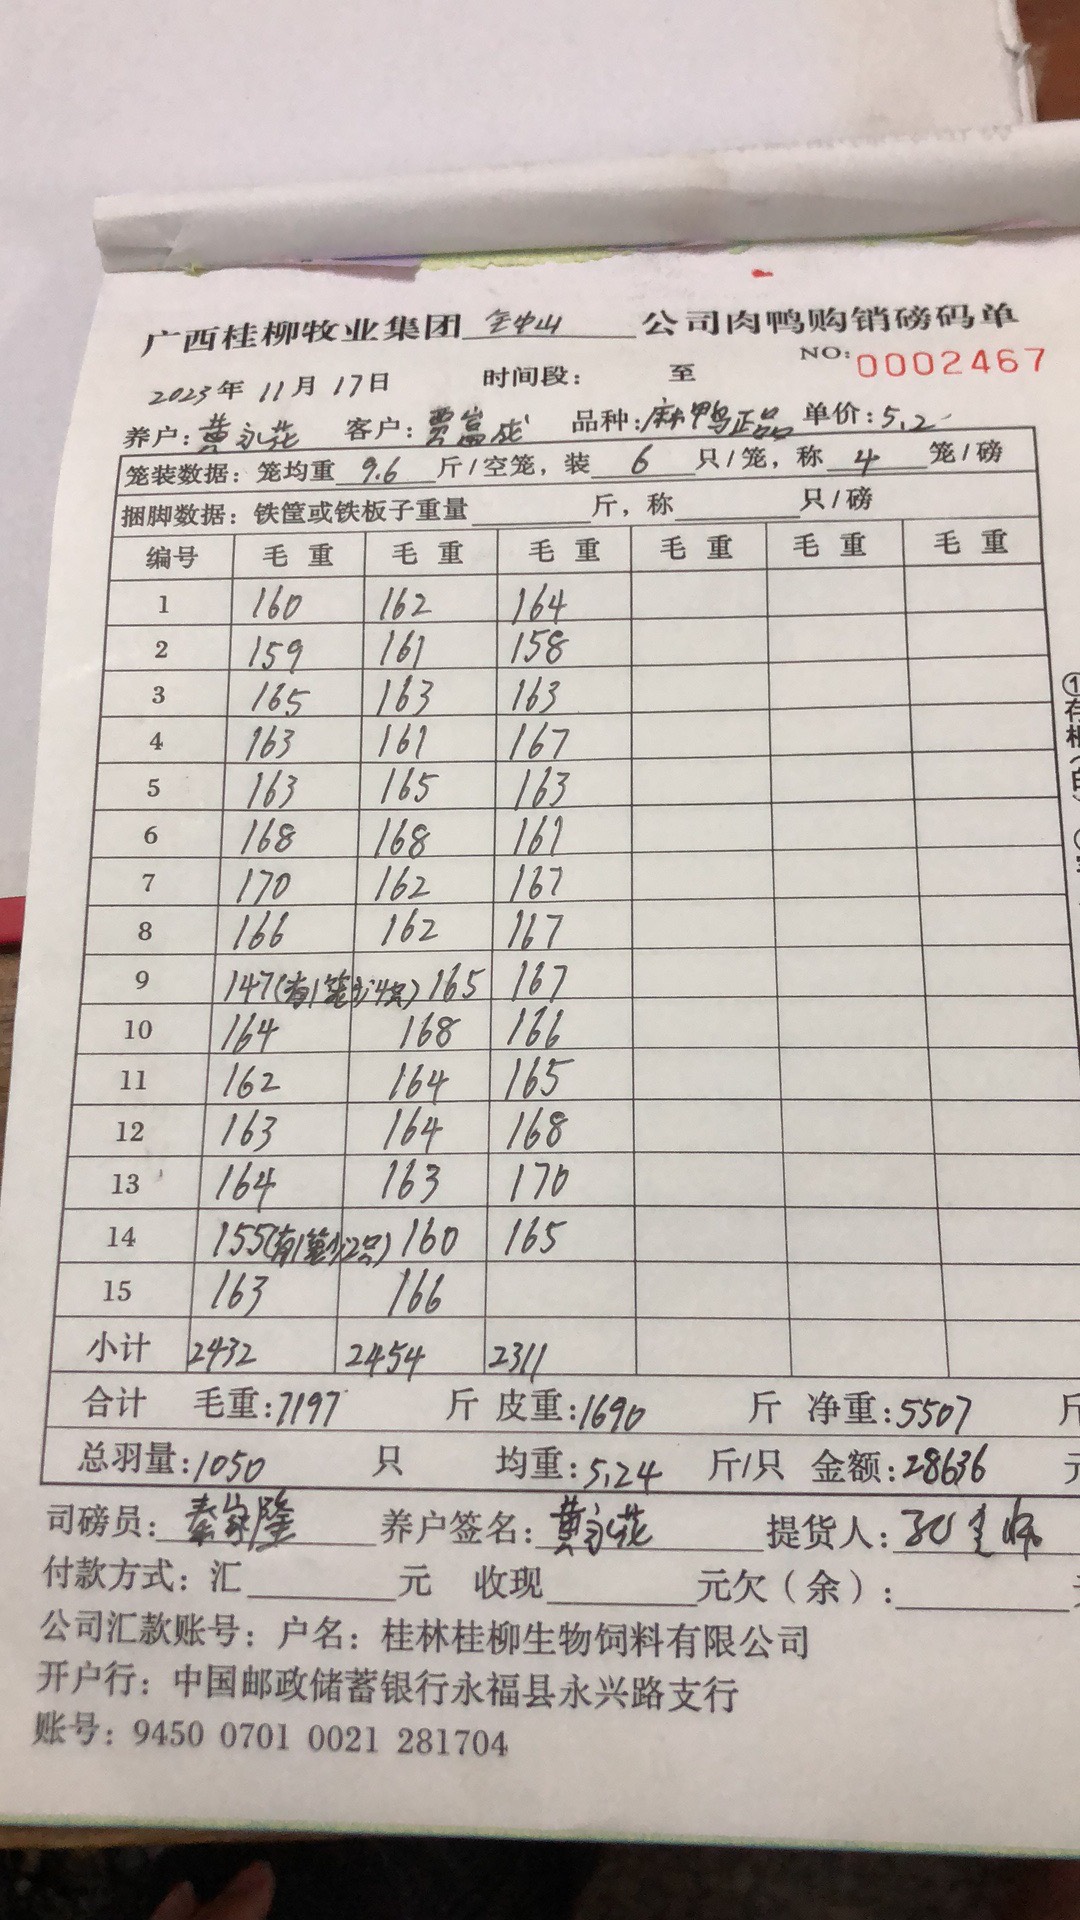 广西桂柳牧业集团全中山公司肉鸭购销磅码单
NO: 0002467
2023年 11月 17日 时间段: 至
养户:黄永花 客户:贾嵩成 品种:麻鸭正品 单价:5.2
笼装数据:笼均重 9.6 斤/空笼,装 6 只/笼,称 4 笼/磅
捆脚数据:铁筐或铁板子重量 斤,称 只/磅
编号 毛重 毛重 毛重 毛重 毛重 毛重
1 160 162 164
2 159 161 158
3 165 163 163
4 163 161 167
5 163 165 163
6 168 168 161
7 170 162 167
8 166 162 167
9 147(有1笼少4只) 165 167
10 164 168 166
11 162 164 165
12 163 164 168
13 164 163 170
14 155(有1笼少2只) 160 165
15 163 166
小计 2432 2454 2311
合计 毛重:7197 斤 皮重:1690 斤 净重:5507 斤
总羽量:1050 只 均重:5.24 斤/只 金额:28636 元
司磅员:秦家隆 养户签名:黄永花 提货人:
付款方式:汇 元 收现 元欠(余):
公司汇款账号:户名:桂林桂柳生物饲料有限公司
开户行:中国邮政储蓄银行永福县永兴路支行
账号:9450 0701 0021 281704
①存根(白)